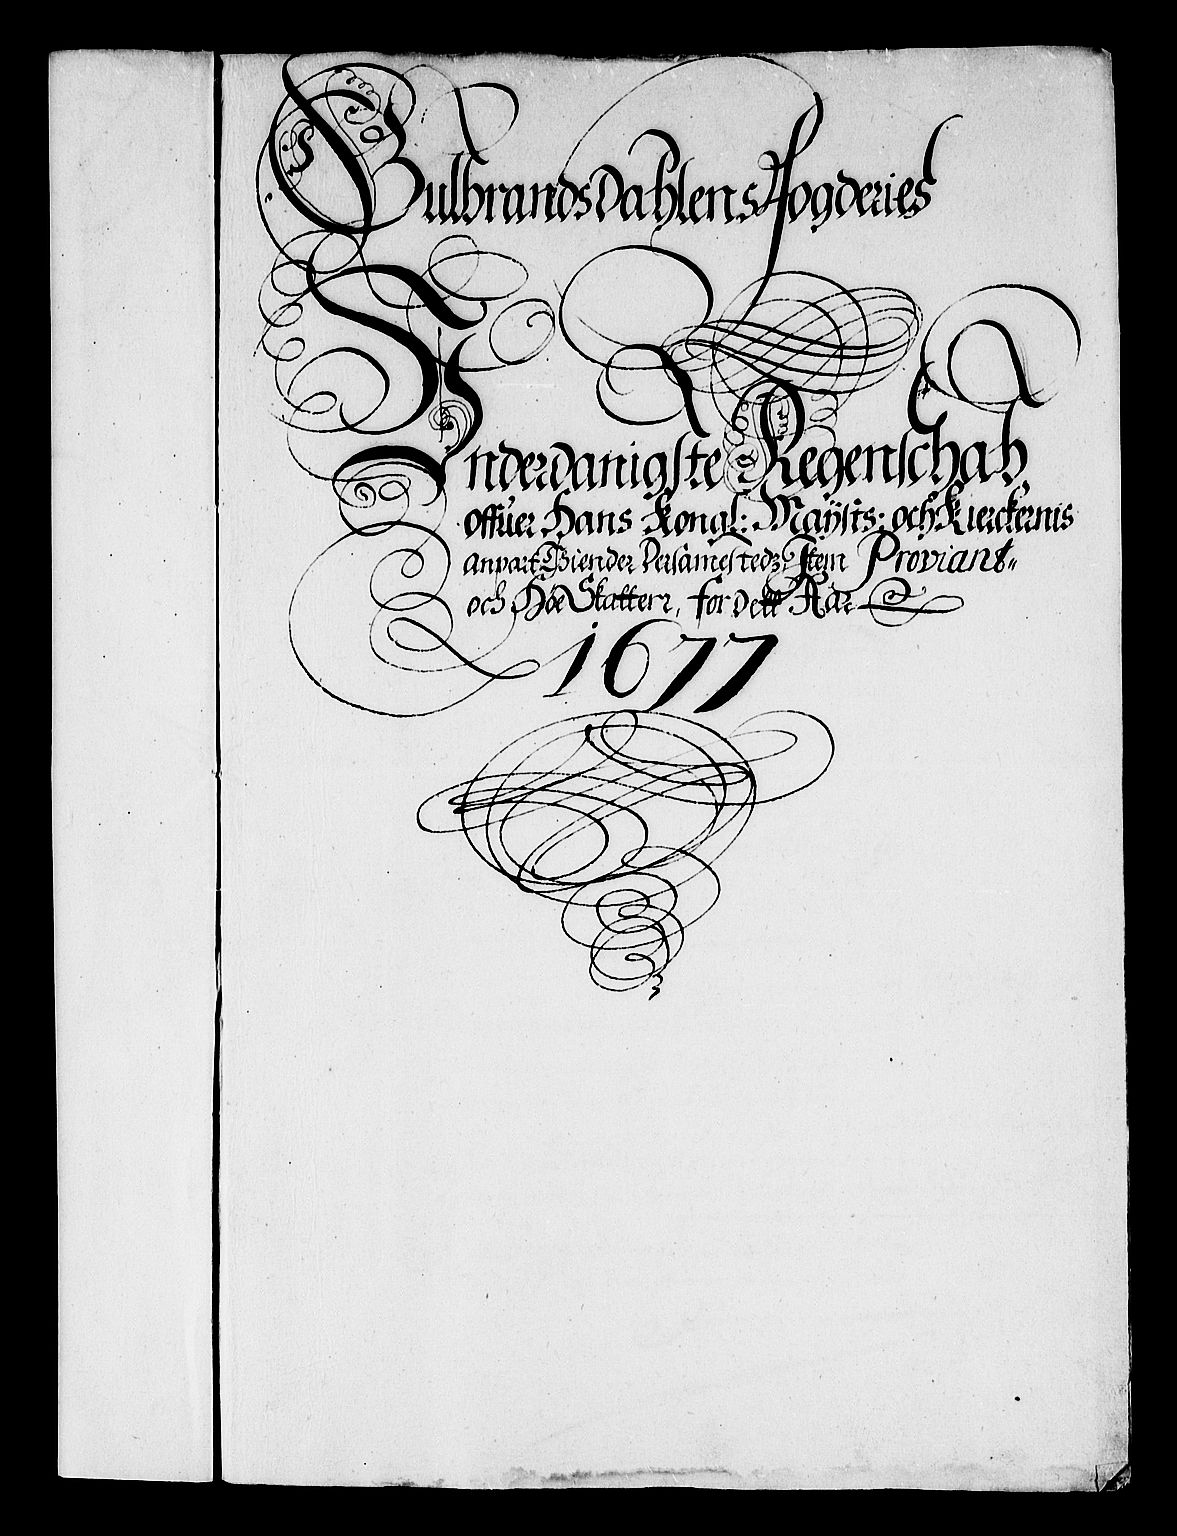 Gulbrands Dahlens Fogderies
Underdanigste Regenschab
offuer Hans Kongl: Maÿsts: och Kierckernis
anpart Tiender Item Proviant-
och Høe Skatter, for dett Aar
1677